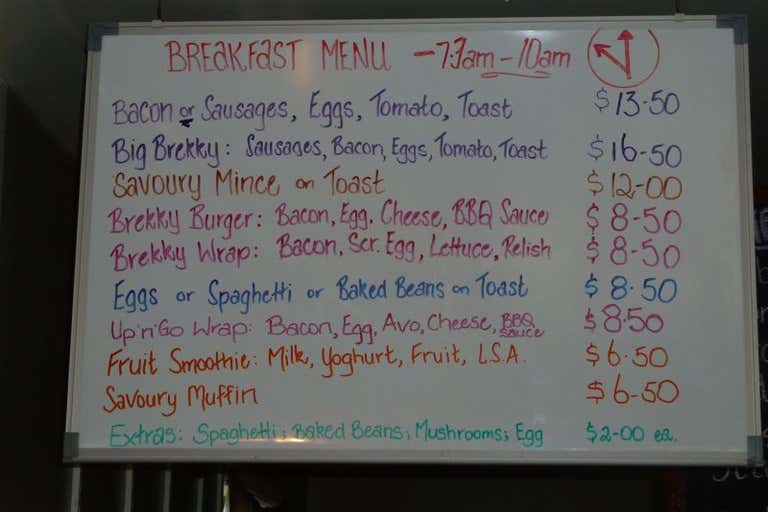 BREAKFAST MENU - 7:30am - 10am
Bacon or Sausages, Eggs, Tomato, Toast $13-50
Big Brekky: Sausages, Bacon, Eggs, Tomato, Toast $16-50
Savoury Mince on Toast $12-00
Brekky Burger: Bacon, Egg, Cheese, BBQ Sauce $8-50
Brekky Wrap: Bacon, Scr. Egg, Lettuce, Relish $8-50
Eggs or Spaghetti or Baked Beans on Toast $8.50
Up'n'Go Wrap: Bacon, Egg, Avo, Cheese, BBQ Sauce $8.50
Fruit Smoothie: Milk, Yoghurt, Fruit, L.S.A. $6.50
Savoury Muffin $6-50
Extras: Spaghetti; Baked Beans; Mushrooms; Egg $2-00 ea.